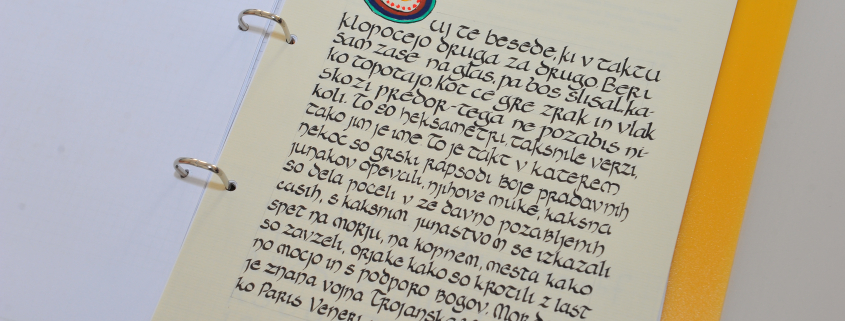 uj te besede, ki v taktu
klopočejo druga za drugo. Beri
sam zase na glas, pa boš slišal, ka-
ko topotajo, kot če gre zrak in vlak
skozi predor - tega ne pozabiš ni-
koli. To so heksametri, takšnile verzi,
tako jim je ime to je takt v katerem
nekoč so grški rapsodi boje pradavnih
junakov opevali, njihove muke, kakšna
so dela počeli v že davno pozabljenih
časih, s kakšnim junaštvom se izkazali
spet na morju, na kopnem, mesta kako
so zavzeli, orjake kako so krotili z last
no močjo in s podporo bogov.
je znana vojna Trojanska
ko Paris Veneri